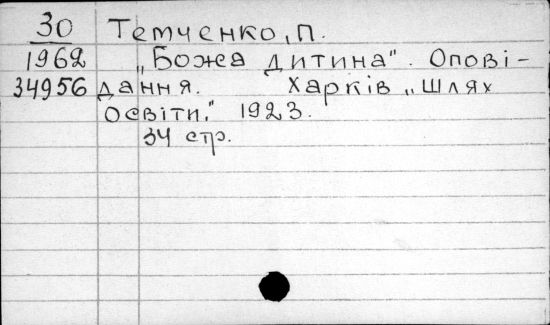 30 Темченко, П.
1962 „Божа дитина". Опові-
34956 дання. Харків „Шлях
Освіти." 1923.
34 стр.